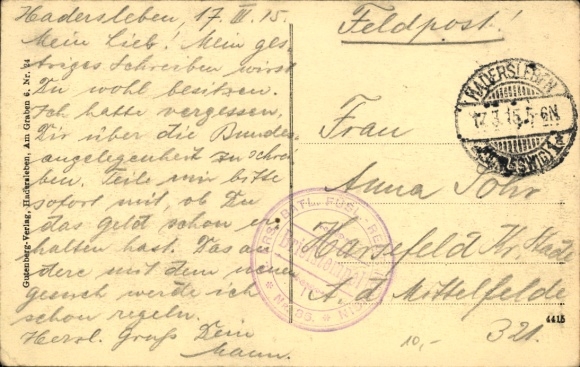 Hadersleben, 17. III. 15.
Mein Lieb! Mein ges-
triges Schreiben wirst
Du wohl besitzen.
Ich hatte vergessen,
Dir über die Bundes-
angelegenheit zu schrei-
ben. Teile mir bitte
sofort mit, ob Du
das Geld schon er-
halten hast. Das an-
dere mit dem neuen
Gesuch werde ich
schon regeln.
Herzl. Gruß Dein
Mann.
Gutenberg-Verlag, Hadersleben, Am Graben 6. Nr. 24
Feldpost!
HADERSLEBEN
17.3.15.5-6N
(SCHLESWIG)
Frau
Anna
Harsefeld Kr. Stade
A. d. Mittelfelde
Briefstempel
10,-
321.
4415